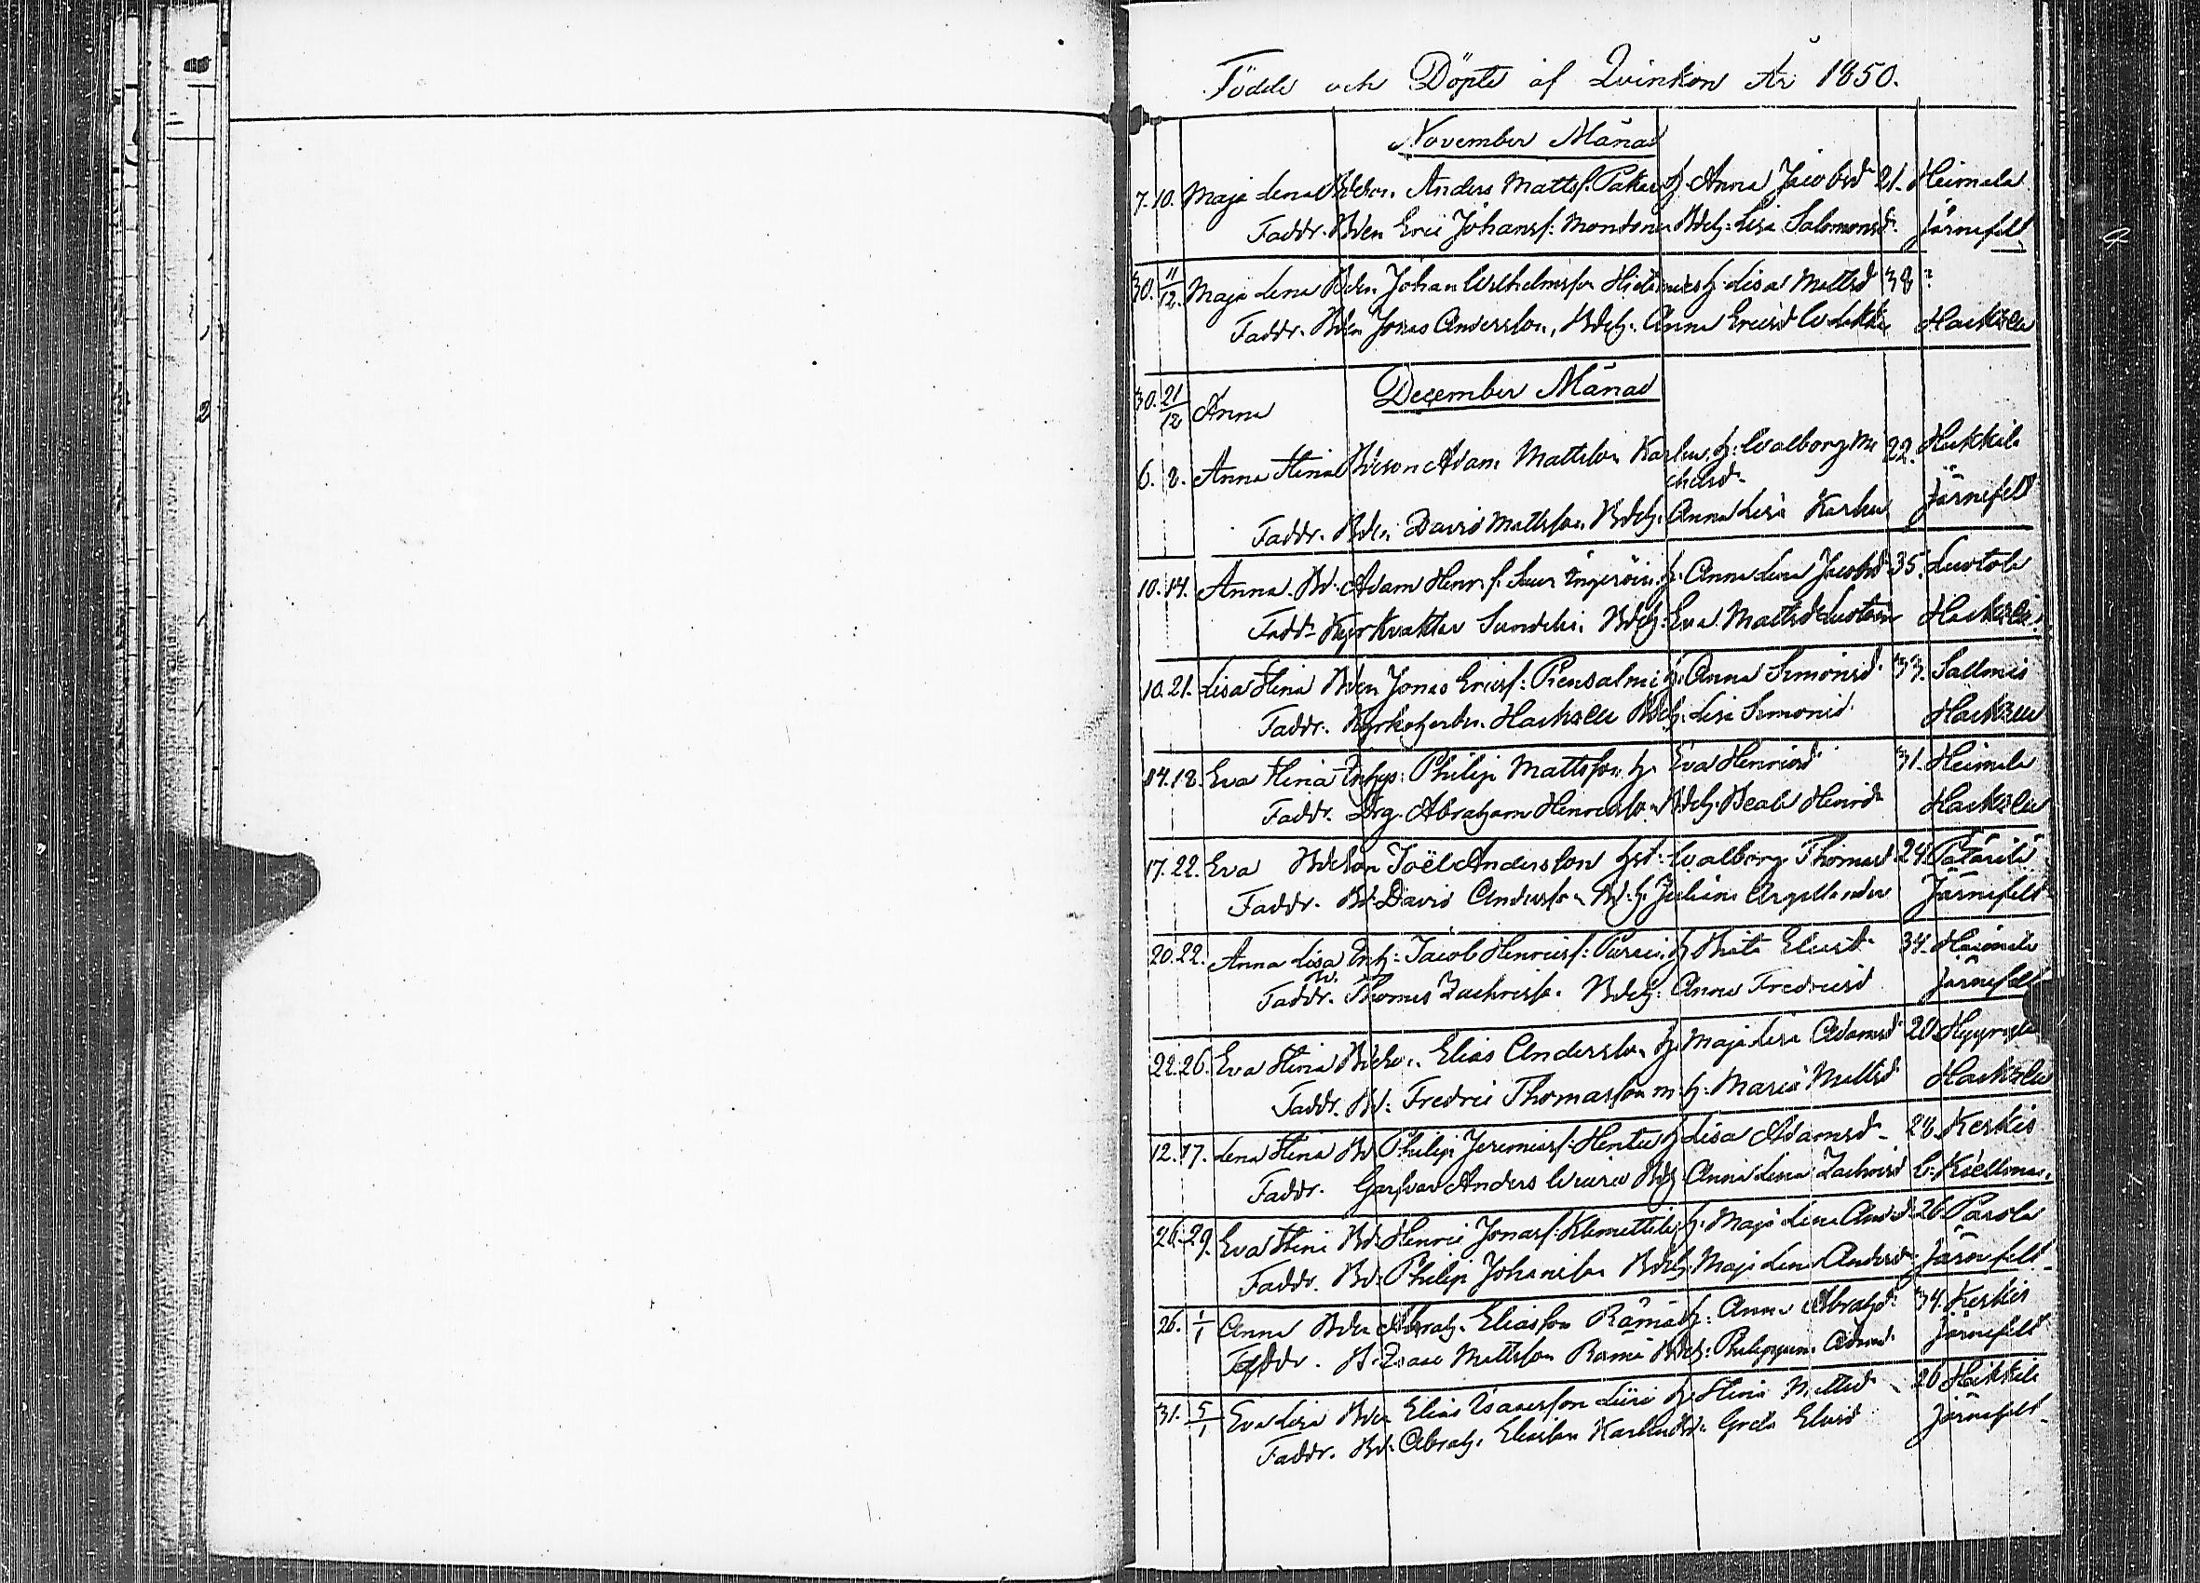 Födde och Döpte af Qvinkön År 1850.
November Månad
7. 10. Maja Lena Bdeson Anders Mattsf. h. Anna Jacobsd 21. Heimala
Faddr. Bden Eric Johansf: Mondonen Bdeh: Lisa Salomonsd. Järnefelt
30. 11/12. Maja Lena Bden Johan Wilhelmsson h. Lisa Mattsd 38
Faddr. Bden Jonas Andersson, Bdeh. Anna Ericsd Hackzell
December Månad
30. 21/12 Anna
6. 8. Anna Stina Bdeson Adam Mattsson Karhu, h: Walborg Mi 22. Heikkilä
chelsd.
Faddr. Bden David Mattsson, Bdeh: Anna Lisa Karhu Järnefelt
10. 14. Anna Bd. Adam Henrf. Ingeröin, h. Anna Lena Jacobsd 35. Luotola
Fadd. Kyrkvaktar Sundelin Bdeh: Eva Mattsd Hackzell
10. 21. Lisa Stina Bden Jonas Ericsf: Piensalmi h. Anna Simonsd. 33. Sallmis
Faddr. Kyrkoherden Hackzell Bdeh. Lisa Simonsd. Hackzell
14. 18. Eva Stina Inhys: Philip Mattsson h. Eva Henricsd 31. Heimala
Faddr. Drg. Abraham Henricsson Bdeh. Beata Henricsd Hackzell
17. 22. Eva Bdeson Joël Andersson hst: Walborg Thomasd 24.
Faddr. Bd. David Andersson Bd. h. Juliana Argillander Järnefelt
20. 22. Anna Lisa Inh: Jacob Henricsf: h. Brita Eliasd. 34. Heimala
Faddr. Thomas Zachrisson. Bdeh: Anna Fredricsd Järnefelt
22. 26. Eva Stina Bdeson Elias Andersson h. Maja Lisa Adamsd 20.
Faddr. Bd: Fredric Thomasson m. h: Maria Mattsd Hackzell
12. 17. Lena Stina Bd. Philip Jeremiasf: Henttu h. Lisa Adamsd 28. Keskis
Faddr. Garfvar Anders Bdh Anna Lena Zachrisd
26. 29. Eva Stina Bd. Henric Jonasf: Klemettilä h: Maja Lena Andersd 26. Parola
Faddr. Bd. Philip Johansson Bdeh. Maja Lena Andersd Järnefelt
26. 1/1 Anna Bden Abrah. Eliasson Rämä h: Anna Abrahsd 34. Keskis
Faddr. B. Isaac Mattsson Rämä Bdeh: Philippina Adamsd. Järnefelt
31. 5/1 Eva Lisa Bden Elias Isaacsson h. Stina Mattsd 26 Heikkilä
Faddr. Bd. Abrah. Eliasson Greta Eliasd Järnefelt